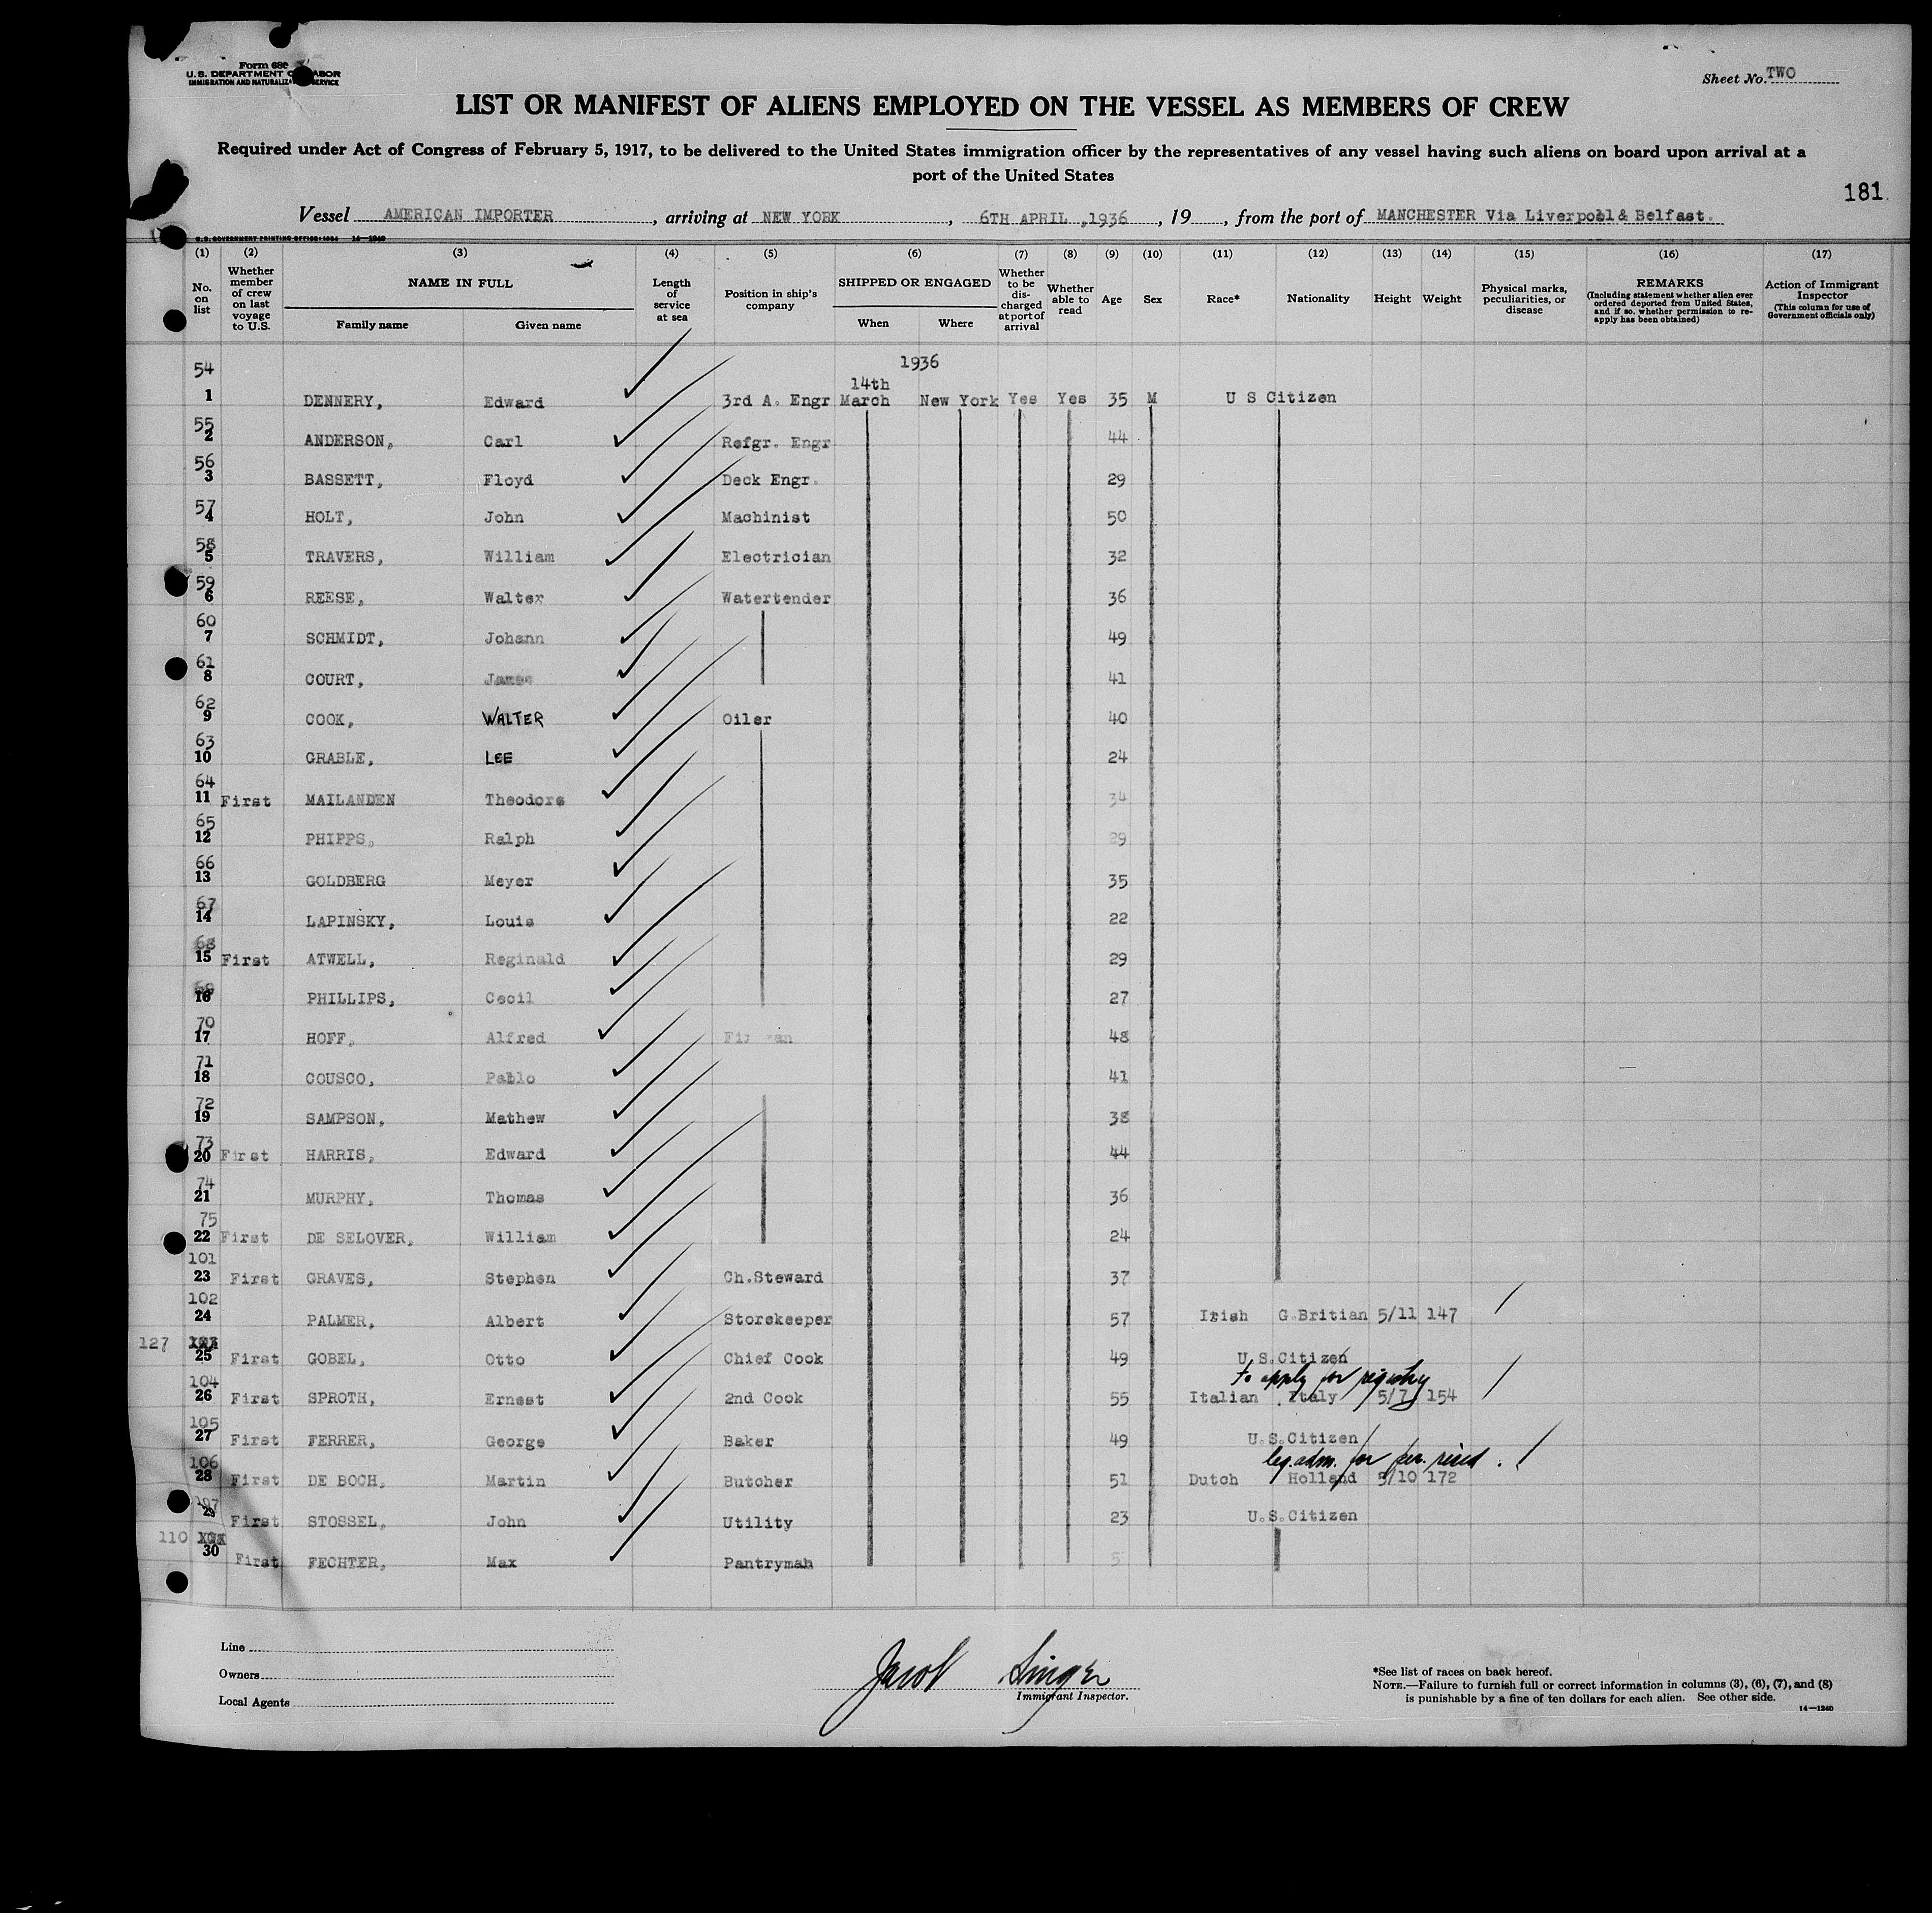 Form 680
U.S. DEPARTMENT OF LABOR
IMMIGRATION AND NATURALIZATION SERVICE
Sheet No. TWO
LIST OR MANIFEST OF ALIENS EMPLOYED ON THE VESSEL AS MEMBERS OF CREW
Required under Act of Congress of February 5, 1917, to be delivered to the United States immigration officer by the representatives of any vessel having such aliens on board upon arrival at a
port of the United States
181
Vessel AMERICAN IMPORTER, arriving at NEW YORK, 6TH APRIL, 1936, 19, from the port of MANCHESTER Via Liverpool & Belfast.
U.S. GOVERNMENT PRINTING OFFICE: 1934 14—1240
(1) (2) (3) (4) (5) (6) (7) (8) (9) (10) (11) (12) (13) (14) (15) (16) (17)
No. on list
Whether member of crew on last voyage to U.S.
NAME IN FULL
Family name Given name
Length of service at sea
Position in ship's company
SHIPPED OR ENGAGED
When Where
Whether to be discharged at port of arrival
Whether able to read
Age
Sex
Race*
Nationality
Height
Weight
Physical marks, peculiarities, or disease
REMARKS
(Including statement whether alien ever ordered deported from United States, and if so, whether permission to re-apply has been obtained)
Action of Immigrant Inspector
(This column for use of Government officials only)
1936
54
14th
1 DENNERY, Edward 3rd A. Engr March New York Yes Yes 35 M U S Citizen
55
2 ANDERSON, Carl Refgr. Engr 44
56
3 BASSETT, Floyd Deck Engr. 29
57
4 HOLT, John Machinist 50
58
5 TRAVERS, William Electrician 32
59
6 REESE, Walter Watertender 36
60
7 SCHMIDT, Johann 49
61
8 COURT, James 41
62
9 COOK, WALTER Oiler 40
63
10 GRABLE, LEE 24
64
11 First MAILANDEN Theodore 34
65
12 PHIPPS, Ralph 29
66
13 GOLDBERG Meyer 35
67
14 LAPINSKY, Louis 22
68
15 First ATWELL, Reginald 29
69
16 PHILLIPS, Cecil 27
70
17 HOFF, Alfred 48
71
18 COUSCO, Pablo 41
72
19 SAMPSON, Mathew 38
73
20 First HARRIS, Edward 44
74
21 MURPHY, Thomas 36
75
22 First DE SELOVER, William 24
101
23 First GRAVES, Stephen Ch.Steward 37
102
24 PALMER, Albert Storekeeper 57 Irish G.Britian 5/11 147
127
25 First GOBEL, Otto Chief Cook 49 U.S.Citizen
to apply for registry
104
26 First SPROTH, Ernest 2nd Cook 55 Italian Italy 5/7 154
105
27 First FERRER, George Baker 49 U.S.Citizen
leg. adm. for per. resid.
106
28 First DE BOCH, Martin Butcher 51 Dutch Holland 5/10 172
107
29 First STOSSEL, John Utility 23 U.S.Citizen
110
30 First FECHTER, Max Pantryman
Line
Owners
Local Agents
Jacob Singer
Immigrant Inspector.
*See list of races on back hereof.
NOTE.—Failure to furnish full or correct information in columns (3), (6), (7), and (8)
is punishable by a fine of ten dollars for each alien. See other side.
14—1240